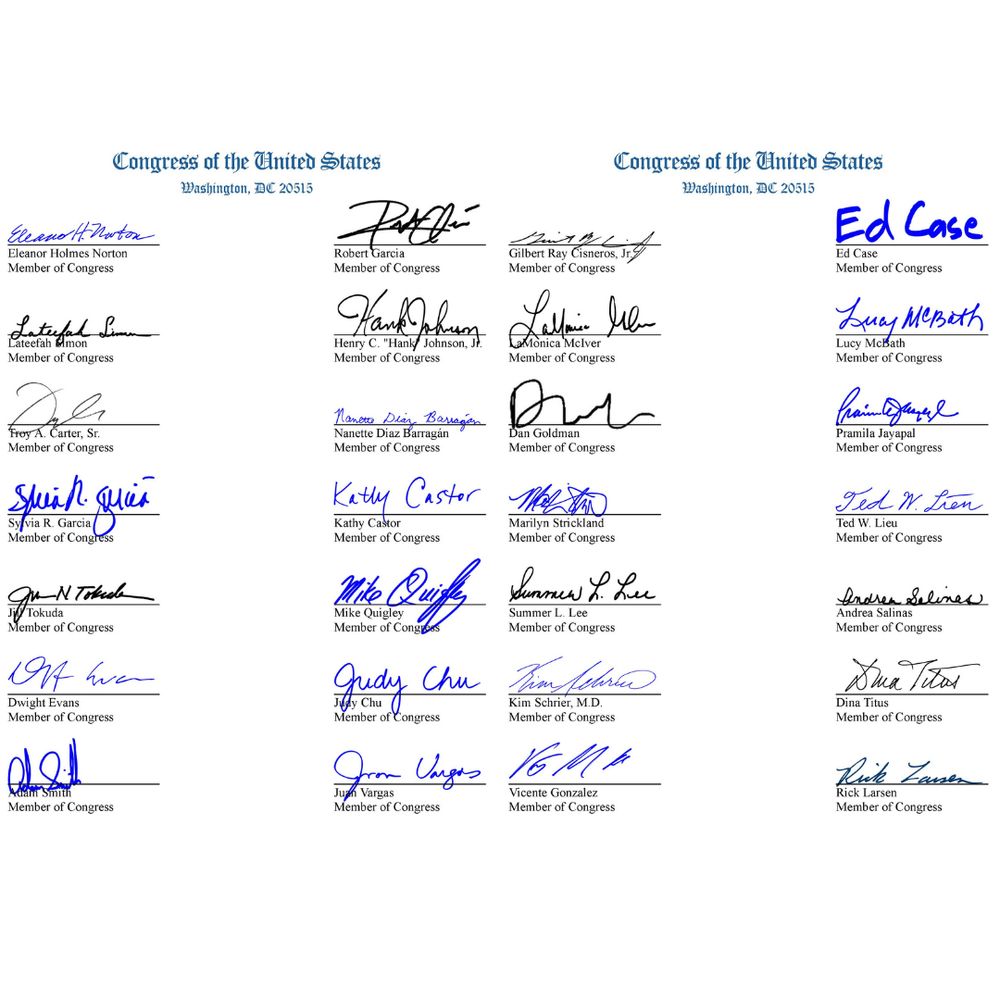 Congress of the United States
Washington, DC 20515
Eleanor H. Norton
Eleanor Holmes Norton
Member of Congress
Robert Garcia
Member of Congress
Lateefah Simon
Lateefah Simon
Member of Congress
Hank Johnson
Henry C. "Hank" Johnson, Jr.
Member of Congress
Troy A. Carter, Sr.
Member of Congress
Nanette Diaz Barragán
Nanette Diaz Barragán
Member of Congress
Sylvia R. Garcia
Sylvia R. Garcia
Member of Congress
Kathy Castor
Kathy Castor
Member of Congress
Jill N Tokuda
Jill Tokuda
Member of Congress
Mike Quigley
Mike Quigley
Member of Congress
Dwight Evans
Member of Congress
Judy Chu
Judy Chu
Member of Congress
Adam Smith
Adam Smith
Member of Congress
Juan Vargas
Juan Vargas
Member of Congress
Congress of the United States
Washington, DC 20515
Gilbert Ray Cisneros, Jr.
Member of Congress
Ed Case
Ed Case
Member of Congress
LaMonica
LaMonica McIver
Member of Congress
Lucy McBath
Lucy McBath
Member of Congress
Dan Goldman
Member of Congress
Pramila Jayapal
Member of Congress
Marilyn Strickland
Member of Congress
Ted W. Lieu
Ted W. Lieu
Member of Congress
Summer L. Lee
Summer L. Lee
Member of Congress
Andrea Salinas
Andrea Salinas
Member of Congress
Kim Schrier
Kim Schrier, M.D.
Member of Congress
Dina Titus
Dina Titus
Member of Congress
Vicente Gonzalez
Member of Congress
Rick Larsen
Rick Larsen
Member of Congress